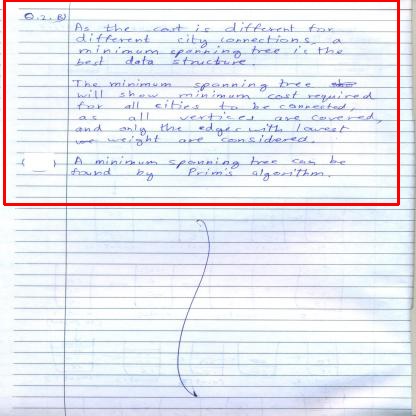 Q.2. B)
As the cost is different for
different city connections, a
minimum spanning tree is the
best data structure.
The minimum spanning tree
will show minimum cost required
for all cities to be connected,
as all vertices are covered,
and only the edges with lowest
weight are considered.
A minimum spanning tree can be
found by Prim's algorithm.